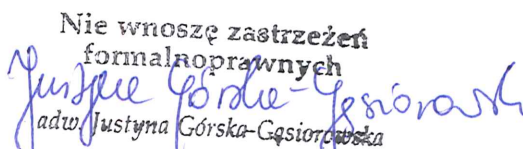 Nie wnoszę zastrzeżeń
formalnoprawnych
Justyna Górska-Gąsiorowska
adw. Justyna Górska-Gąsiorowska